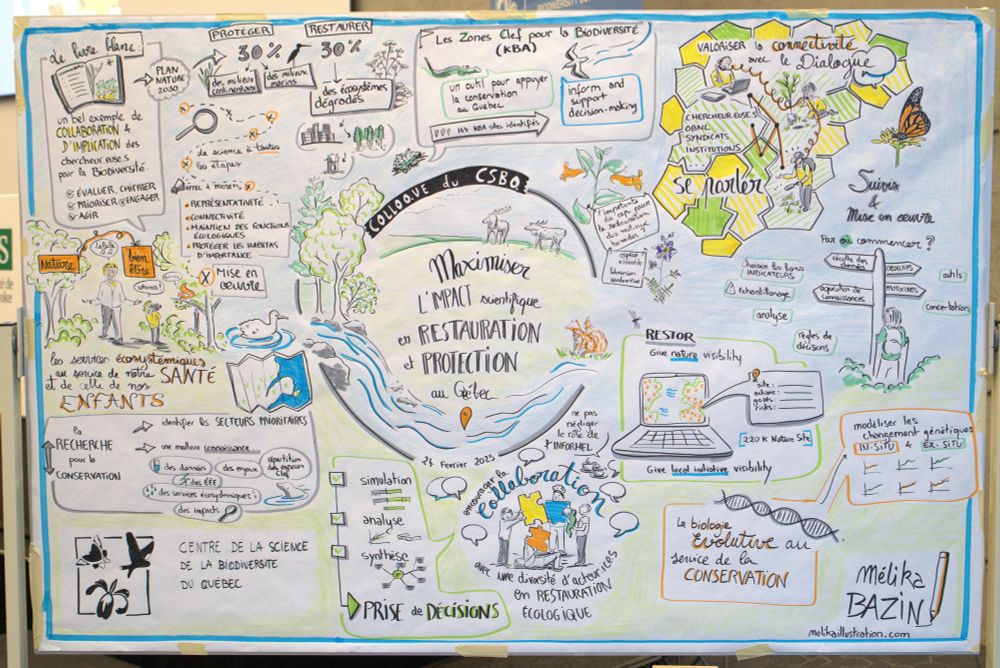 BIODIVERSITY
Le livre blanc:
un bel exemple de
COLLABORATION &
D'IMPLICATION des
chercheur.euse.s
pour la Biodiversité.
ÉVALUER, CHIFFRER
PRIORISER ENGAGER
AGIR
PLAN
NATURE
2030
PROTÉGER
30%
des milieux
continentaux
des milieux
marins
RESTAURER
30%
des écosystèmes
dégradés
de science à toutes
les étapes
REPRÉSENTATIVITÉ
CONNECTIVITÉ
MAINTIEN DES FONCTIONS
ÉCOLOGIQUES
PROTÉGER LES HABITAS
MISE en
œUVRE
Les Zones Clef pour la BiodiveRSITÉ
(KBA)
un outil pour appuyer
la conservation
au Québec
inform and
support
decision-making
KBA sites identifiés
VALORISER la connectivité
avec le Dialogue
CHERCHEUR.EUSE.S
OBNL
SYNDICATS
INSTITUTIONS
se parler
Suivis
&
Mise en œuvre
Par où commencer?
choisir les bons
INDICATEURS
échantillonage
analyse
règles de
décisions
récolte des
données
acquisition de
connaissances
OBJECTIFS
outils
concertation
COLLOQUE du CSBQ
Maximiser
L'IMPACT scientifique
en RESTAURATION
et PROTECTION
au Québec
24 Février 2025
Nature
bien
être
les services écosystémiques
au service de notre SANTÉ
et de celle de nos
ENFANTS
la
RECHERCHE
pour la
CONSERVATION
identifier les SECTEURS PRIORITAIRES
une meilleure connaissance
des données
des enjeux
répartition
des espèces
clef
des ÉEE
des services écosystémiques
des impacts
CENTRE DE LA SCIENCE
DE LA BIODIVERSITÉ
DU QUÉBEC
simulation
analyse
synthèse
PRISE de DÉCISIONS
ne pas
négliger
le rôle de
l'INFORMEL
encourager la
collaboration
avec une diversité d'acteur.rices
en RESTAURATION
ÉCOLOGIQUE
RESTOR
Give nature visibility
site:
actions:
goals:
risks:
220 K Nature Site
Give local initiative visibility
modéliser les
changement génétiques
IN-SITU & EX-SITU
la biologie
évolutive au
service de la
CONSERVATION
Mélika
BAZIN
melikaillustration.com